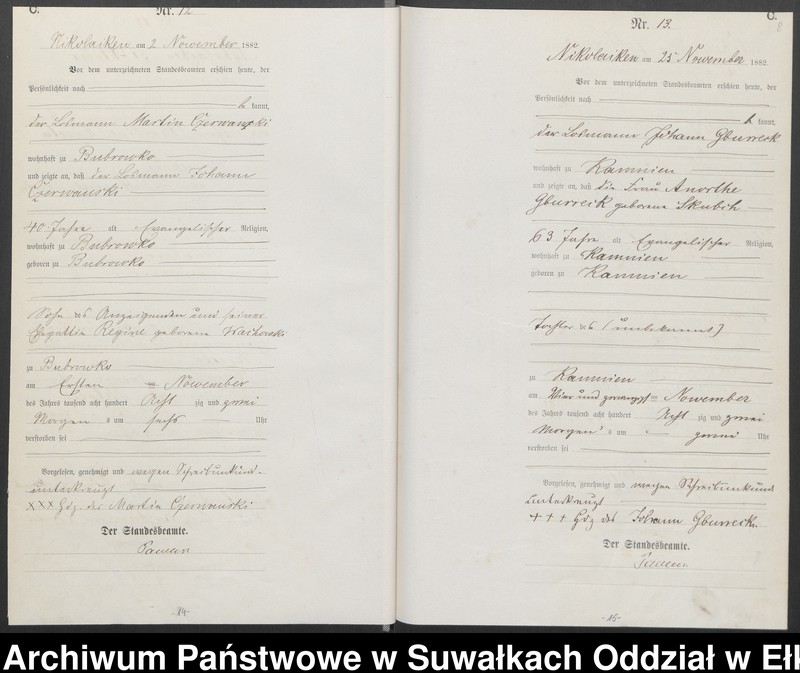 C.
Nr. 12
Nikolaiken am 2 November 1882.
Vor dem unterzeichneten Standesbeamten erschien heute, der
Persönlichkeit nach
kannt,
der Losmann Martin Czerwanski
wohnhaft zu Bubrowko
und zeigte an, daß der Losmann Johann
Czerwanski
40 Jahre alt Evangelischer Religion,
wohnhaft zu Bubrowko
geboren zu Bubrowko
Sohn des Anzeigenden und seiner
Ehegattin Regine geborene Wachowski
zu Bubrowko
am Ersten November
des Jahres tausend acht hundert Acht zig und zwei
Morgens um sechs Uhr
verstorben sei
Vorgelesen, genehmigt und wegen Schreibunkunde
unterkreuzt
XXX Hdz. des Martin Czerwanski
Der Standesbeamte.
-14-
C.
8
Nr. 13.
Nikolaiken am 25 November 1882.
Vor dem unterzeichneten Standesbeamten erschien heute, der
Persönlichkeit nach
kannt,
der Losmann Johann Gburreck
wohnhaft zu Kamnien
und zeigte an, daß die Frau Anorthe
Gburreik geborene Skubich
63 Jahre alt Evangelischer Religion,
wohnhaft zu Kamnien
geboren zu Kamnien
Tochter des (unbekannt)
zu Kamnien
am Vier und zwanzigsten November
des Jahres tausend acht hundert Acht zig und zwei
Morgens um zwei Uhr
verstorben sei
Vorgelesen, genehmigt und wegen Schreibunkund
unterkreuzt
+++ Hdz des Johann Gburreck
Der Standesbeamte.
-15-
Archiwum Państwowe w Suwałkach Oddział w Ełk